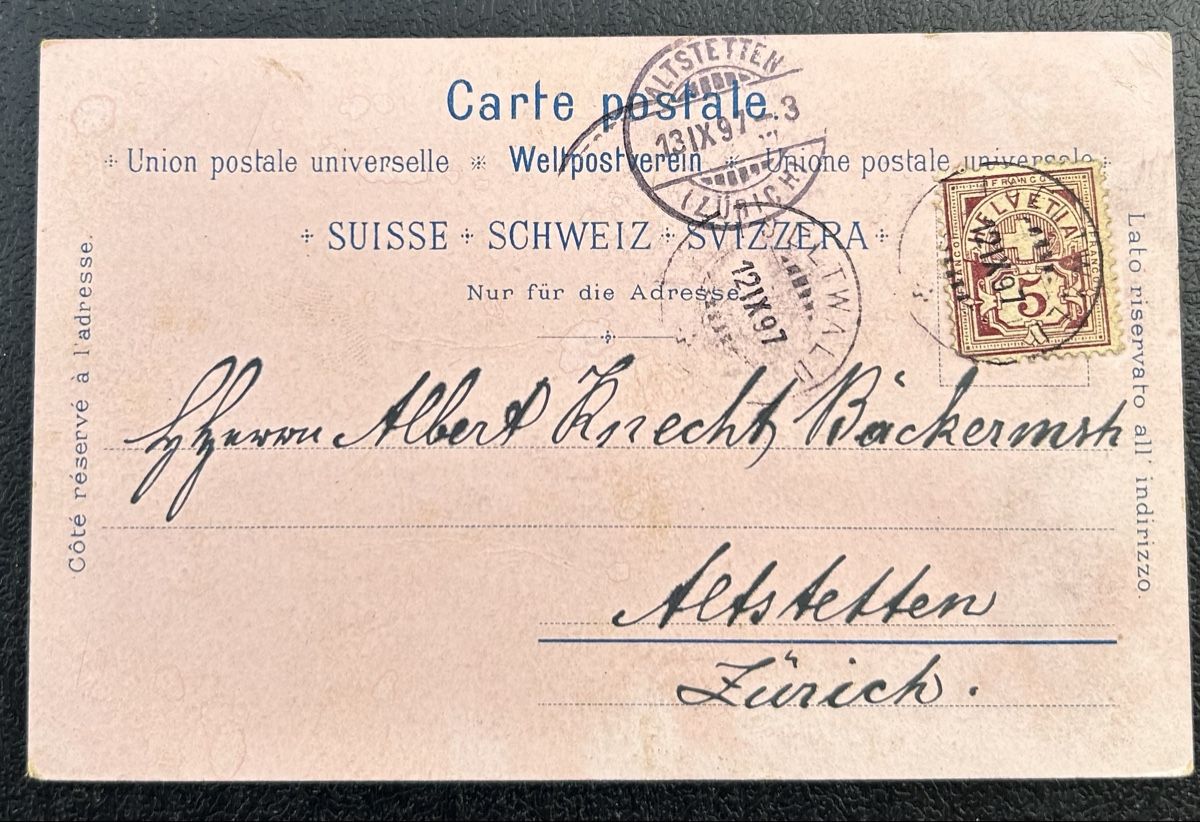 Carte postale.
Union postale universelle * Weltpostverein * Unione postale universale
SUISSE SCHWEIZ SVIZZERA
Nur für die Adresse.
Côté réservé à l'adresse.
Lato riservato all' indirizzo.
ALTSTETTEN
13 IX 97 3
(ZÜRICH)
12 IX 97
FRANCO
HELVETIA
FRANCO
FRANCO
5
Herrn Albert Knecht Bäckermstr
Altstetten
Zürich.